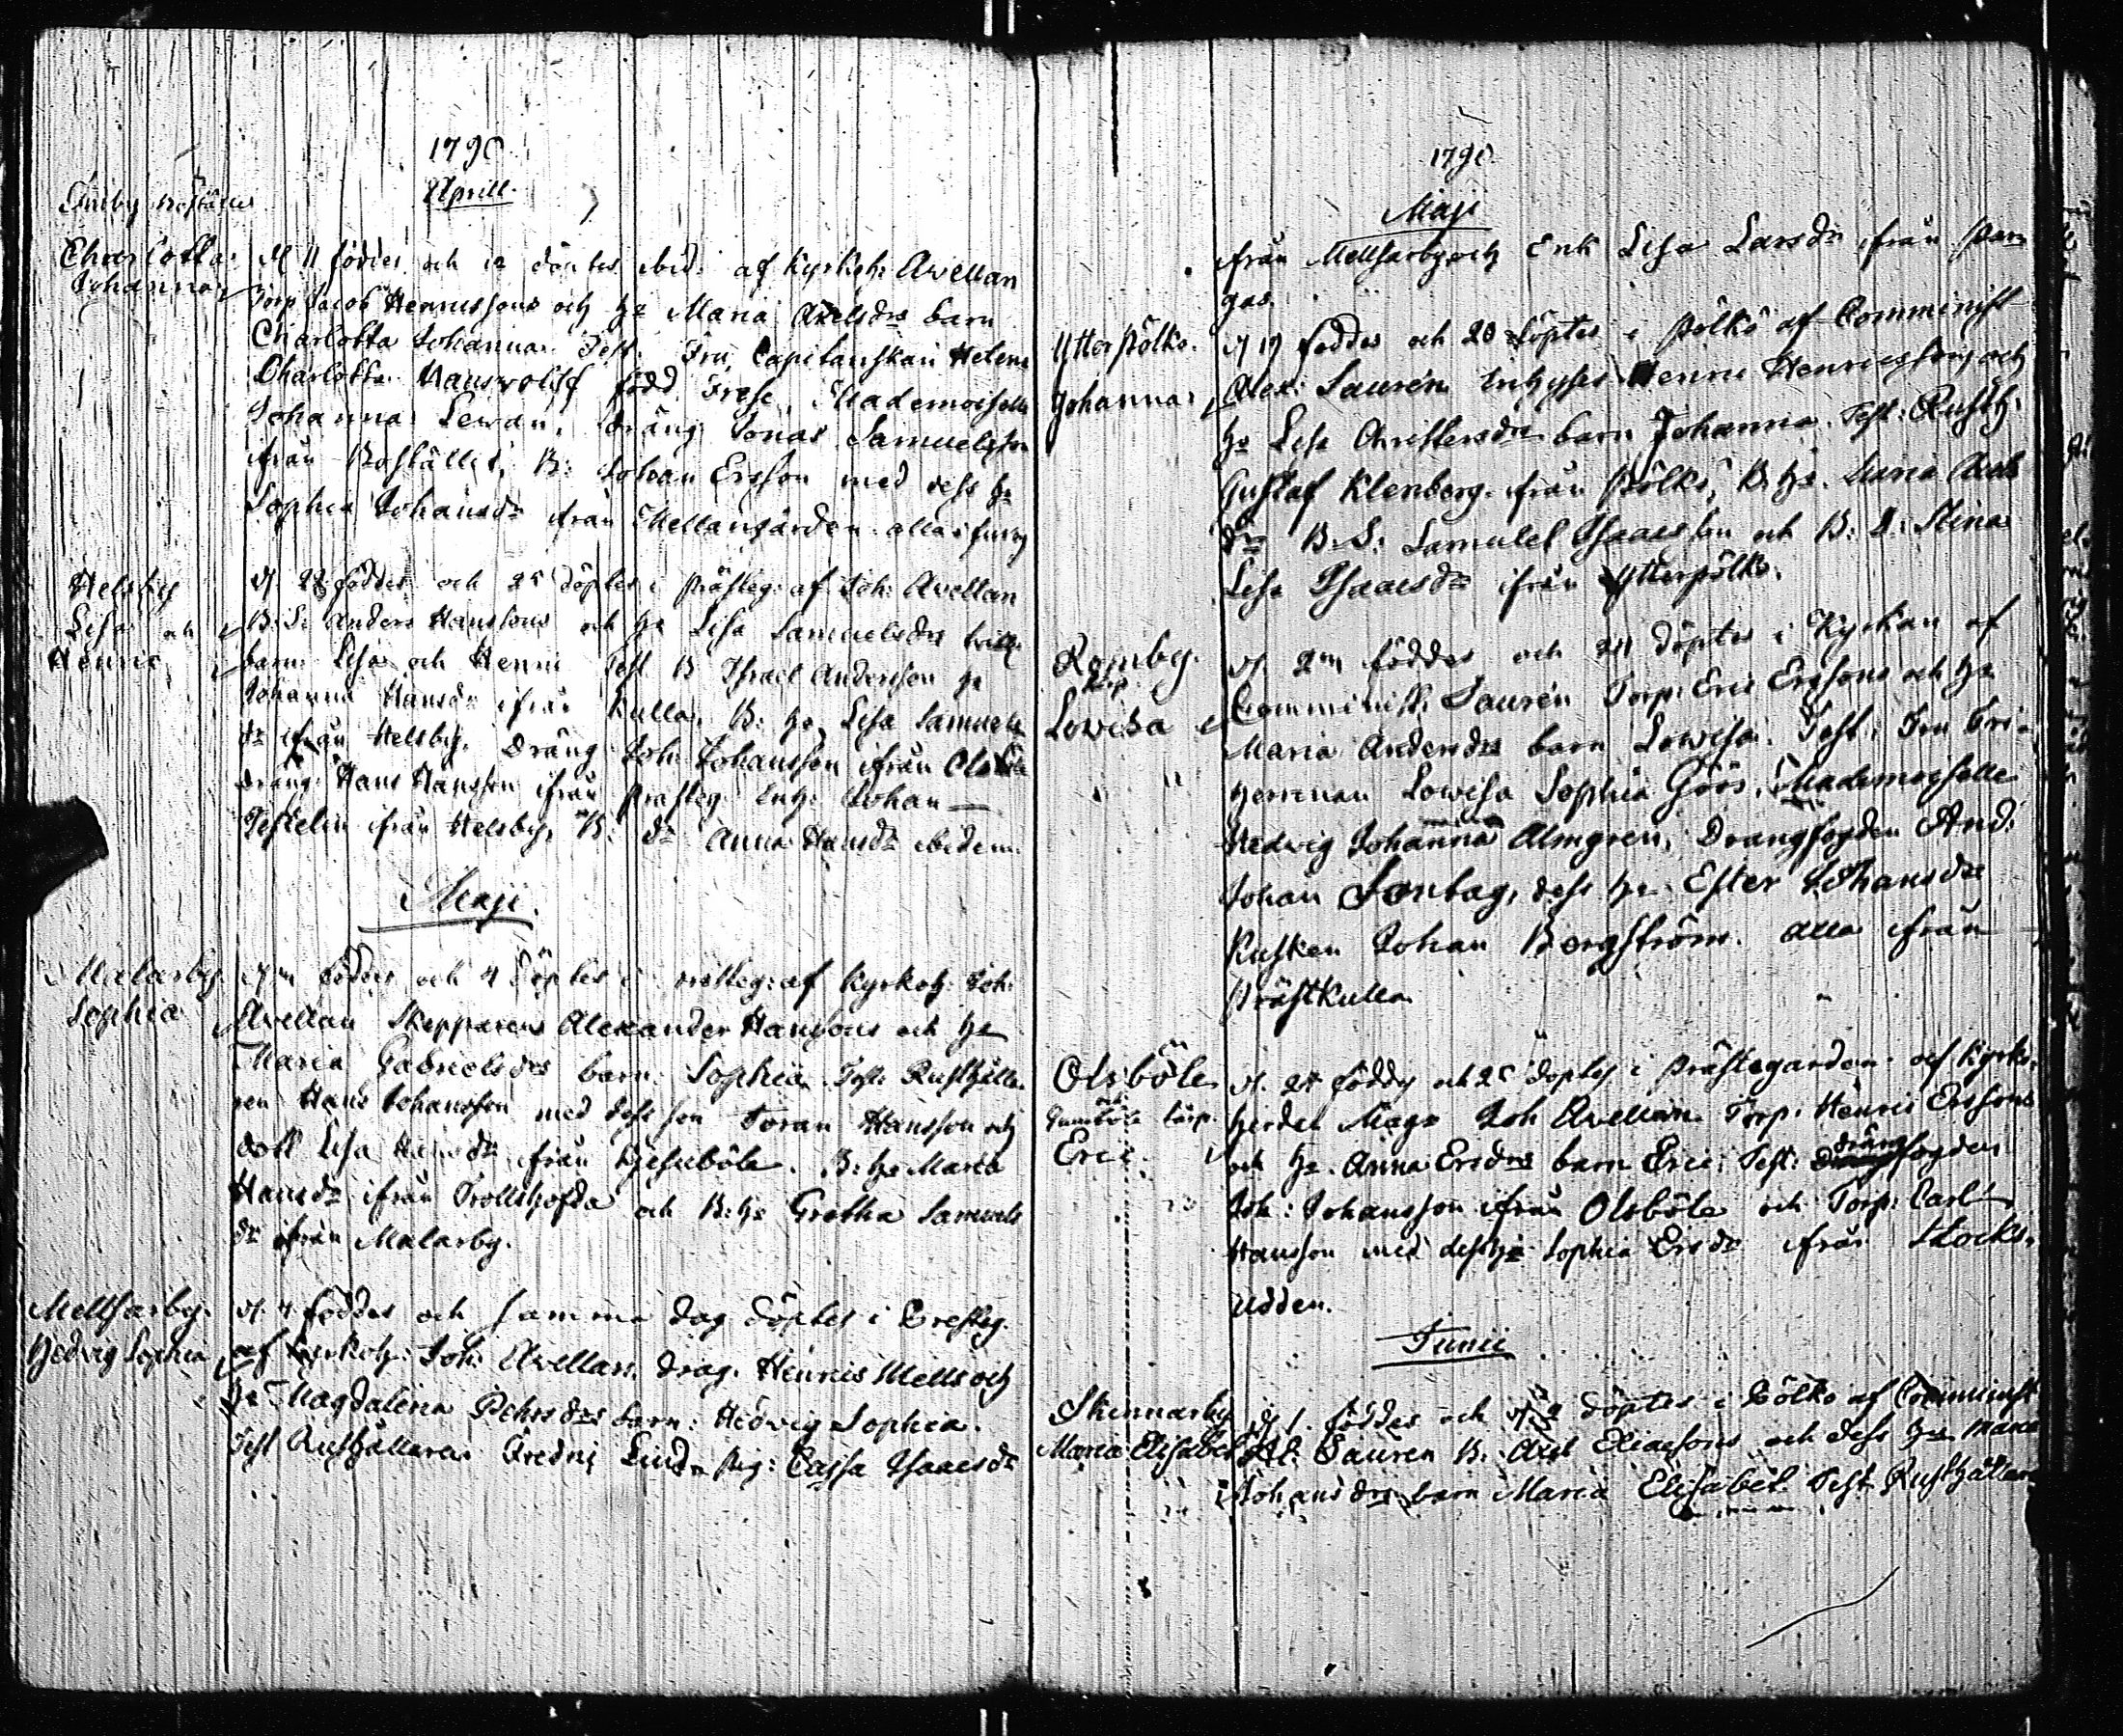 1790
Aprill
Charlotta
Johanna
d 11 föddes och 12 döptes ibid: af Kyrkoh: Avellan
Torp Jacob Henricssons och hu Maria Axelsdrs barn
Charlotta Johanna. Test. Fru Capitanskan Helena
Charlotta född Frese, Mademoiselle
Johanna Lewan, Dräng Jonas Samuelsson
ifrån Bostället, B: Johan Ersson med dess hu
Sophia Johansdr ifrån Mellangården alla i
Helsby
Lisa och
Henric
d 22 föddes och 25 döptes i Prästeg: af Joh: Avellan
B: S: Anders Hanssons och hu Lisa Samuelsdrs
barn Lisa och Henric Test B Israel Andersson hu
Johanna Hansdr ifrån Kulla, B: hu Lisa Samuels
dr ifrån Helsby, Dräng Joh: Johansson ifrån Olsböle
dräng Hans Hansson ifrån Prästeg Inh: Johan
ifrån Helsby, B: dr Anna Hansdr ibidem
Maji.
Malarby
Sophia
föddes och 4 döptes i Prästeg: af Kyrkoh: Joh:
Avellan Skepparens Alexander Hanssons och hu
Maria Gabrielsdrs barn Sophia. Test: Rusthålla
ren Hans Johansson med dess son Joran Hansson och
dott Lisa Hansdr ifrån Gesuböle. B: hu Maria
Hansdr ifrån Trollshofda och B: hu Gretha Samuels
dr ifrån Malarby.
Mellsarby.
Hedvig Sophia
d. 4 föddes och samma dag döptes i Presteg.
af Kyrkoh: Joh: Avellan, Drag. Henrics Mells och
hu Magdalena Pehrsdrs barn: Hedvig Sophia.
Test Rusthållaren Fredric Lind, Pig: Cajsa Isaacsdr
1790
Maji
ifrån Mellsarby och Enk Lisa Larsdr ifrån Par
gas.
Ytterpölkö.
Johanna
d 19 föddes och 20 döptes i Pölkö af Comminist
Alex: Saurén Inhyses Henric Henricssons och
hu Lisa Christersdrs barn Johanna. Test: Rusth:
Gustaf Klenberg ifrån Pölkö, B. hu. Maria Axels
dr B. S: Samulel Isaacsson och B: D: Stina
Lisa Isaacsdr ifrån Ytterpölkö.
Romby.
torp
Lowisa
föddes och 24 döptes i Kyrkan af
Comminist: Saurén Torp: Eric Erssons och hu
Maria Andersdrs barn Lowisa. Test: Fru Fri-
herrinan Lowisa Sophia Göös, Mademoyselle
Hedwig Johanna Almgren, Drangfogden And:
Johan Sontag, dess hu Ester Johansdr
Kusken Johan Bergström. alla ifrån
Prästkulla
Olsböle
torp.
Eric.
d. 24 föddes och 25 döptes i Prästegården af Kyrko-
herden Mag: Joh Avellan Torp: Henric Erssons
och hu. Anna Ersdrs barn Eric: Test: drängfogden
Joh: Johansson ifrån Olsböle och Torp: Carl
Hansson med dess hu Sophia Ersdr ifrån Stocks-
udden.
Junii
Skinnarby
Maria Elisabet
d 1. föddes och d 2 döptes i Pölkö af Comminist
Al: Sauren B: Axel Eliaesons och dess hu Maria
Johansdrs barn Maria Elisabet Test Rusthållaren